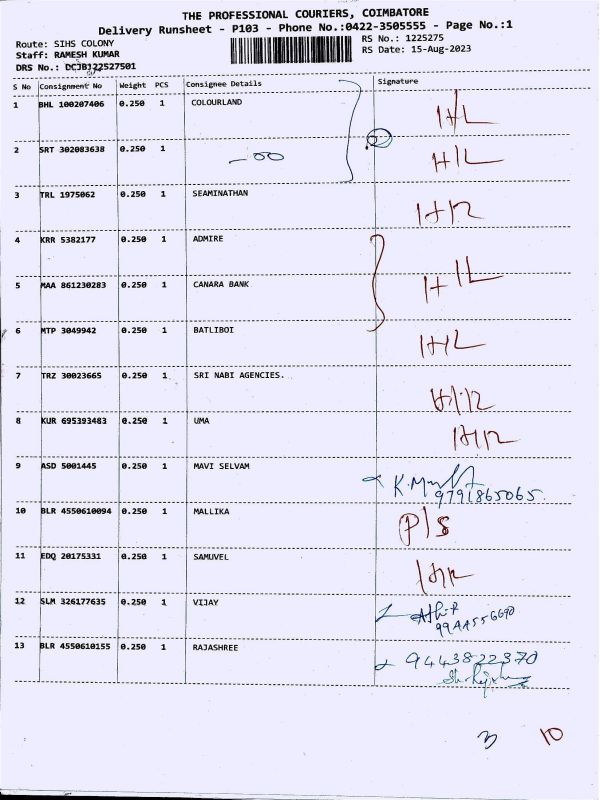 THE PROFESSIONAL COURIERS, COIMBATORE
Delivery Runsheet - P103 - Phone No.:0422-3505555 - Page No.:1
Route: SIHS COLONY
RS No.: 1225275
Staff: RAMESH KUMAR
RS Date: 15-Aug-2023
DRS No.:
S No Consignment No Weight PCS Consignee Details Signature
1 BHL 100207406 0.250 1 COLOURLAND H/L
2 SRT 302083638 0.250 1 H/L
3 TRL 1975062 0.250 1 SEAMINATHAN
4 KRR 5382177 0.250 1 ADMIRE
5 MAA 861230283 0.250 1 CANARA BANK
6 MTP 3049942 0.250 1 BATLIBOI
7 TRZ 30023665 0.250 1 SRI NABI AGENCIES.
8 KUR 695393483 0.250 1 UMA
9 ASD 5001445 0.250 1 MAVI SELVAM
9791865065
10 BLR 4550610094 0.250 1 MALLIKA P/S
11 EDQ 20175331 0.250 1 SAMUVEL
12 SLM 326177635 0.250 1 VIJAY
9944556690
13 BLR 4550610155 0.250 1 RAJASHREE 9443822370
3 10